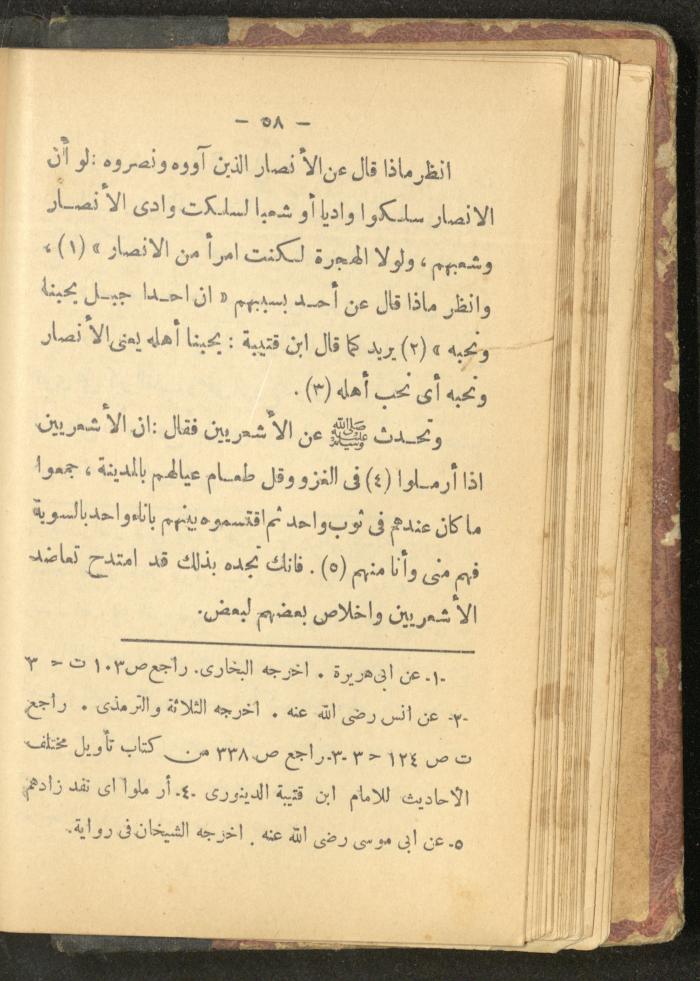 — ٥٨ —
انظر ماذا قال عن الأنصار الذين آووه ونصروه : لو أن
الانصار سلكوا واديا أو شعبا لسلكت وادى الأنصار
وشعبهم ، ولولا الهجرة لكنت امرأ من الانصار » (١) ،
وانظر ماذا قال عن أحد بسببهم « ان احدا جبل يحبنا
ونحبه » (٢) يريد كما قال ابن قتيبة : يحبنا أهله يعنى الأنصار
ونحبه أى نحب أهله (٣) .
وتحدث ﷺ عن الأشعريين فقال : ان الأشعريين
اذا أرملوا (٤) فى الغزو وقل طعام عيالهم بالمدينة ، جمعوا
ما كان عندهم فى ثوب واحد ثم اقتسموه بينهم باناء واحد بالسوية
فهم منى وأنا منهم (٥) . فانك تجده بذلك قد امتدح تعاضد
الأشعريين واخلاص بعضهم لبعض.
-١- عن ابى هريرة . اخرجه البخارى. راجع ص ١٠٣ ت ح ٣
-٢- عن انس رضى الله عنه . اخرجه الثلاثة والترمذى . راجع
ت ص ١٢٤ ح ٣ -٣- راجع ص ٣٣٨ من كتاب تأويل مختلف
الاحاديث للامام ابن قتيبة الدينورى -٤- أرملوا اى نفد زادهم
٥- عن ابى موسى رضى الله عنه . اخرجه الشيخان فى رواية.